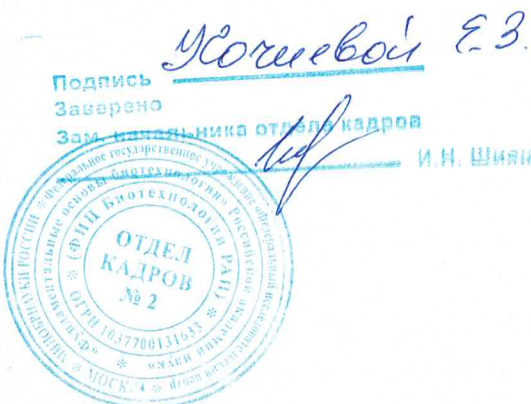 Подпись Кочиевой Е.З.
Заверено
Зам. начальника отдела кадров
И.Н. Шиян
МИНОБРНАУКИ РОССИИ * Федеральное государственное учреждение «Федеральный исследовательский центр
«Фундаментальные основы биотехнологии» Российской академии наук»
* (ФИЦ Биотехнологии РАН) *
ОГРН 1037700131633
ОТДЕЛ
КАДРОВ
№ 2
* МОСКВА *